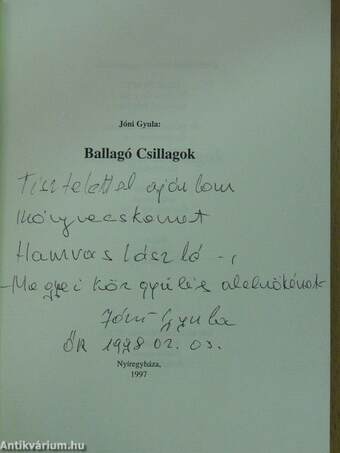 Jóni Gyula:
Ballagó Csillagok
Tisztelettel ajánlom
könyvecskémet
Hamvas László -,
- Megyei közgyűlés alelnökének
Jóni Gyula
Őr 1998 02. 03.
Nyíregyháza,
1997
Antikvárium.hu